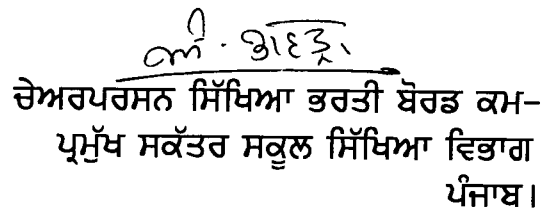 ਚੇਅਰਪਰਸਨ ਸਿੱਖਿਆ ਭਰਤੀ ਬੋਰਡ ਕਮ-
ਪ੍ਰਮੁੱਖ ਸਕੱਤਰ ਸਕੂਲ ਸਿੱਖਿਆ ਵਿਭਾਗ
ਪੰਜਾਬ।